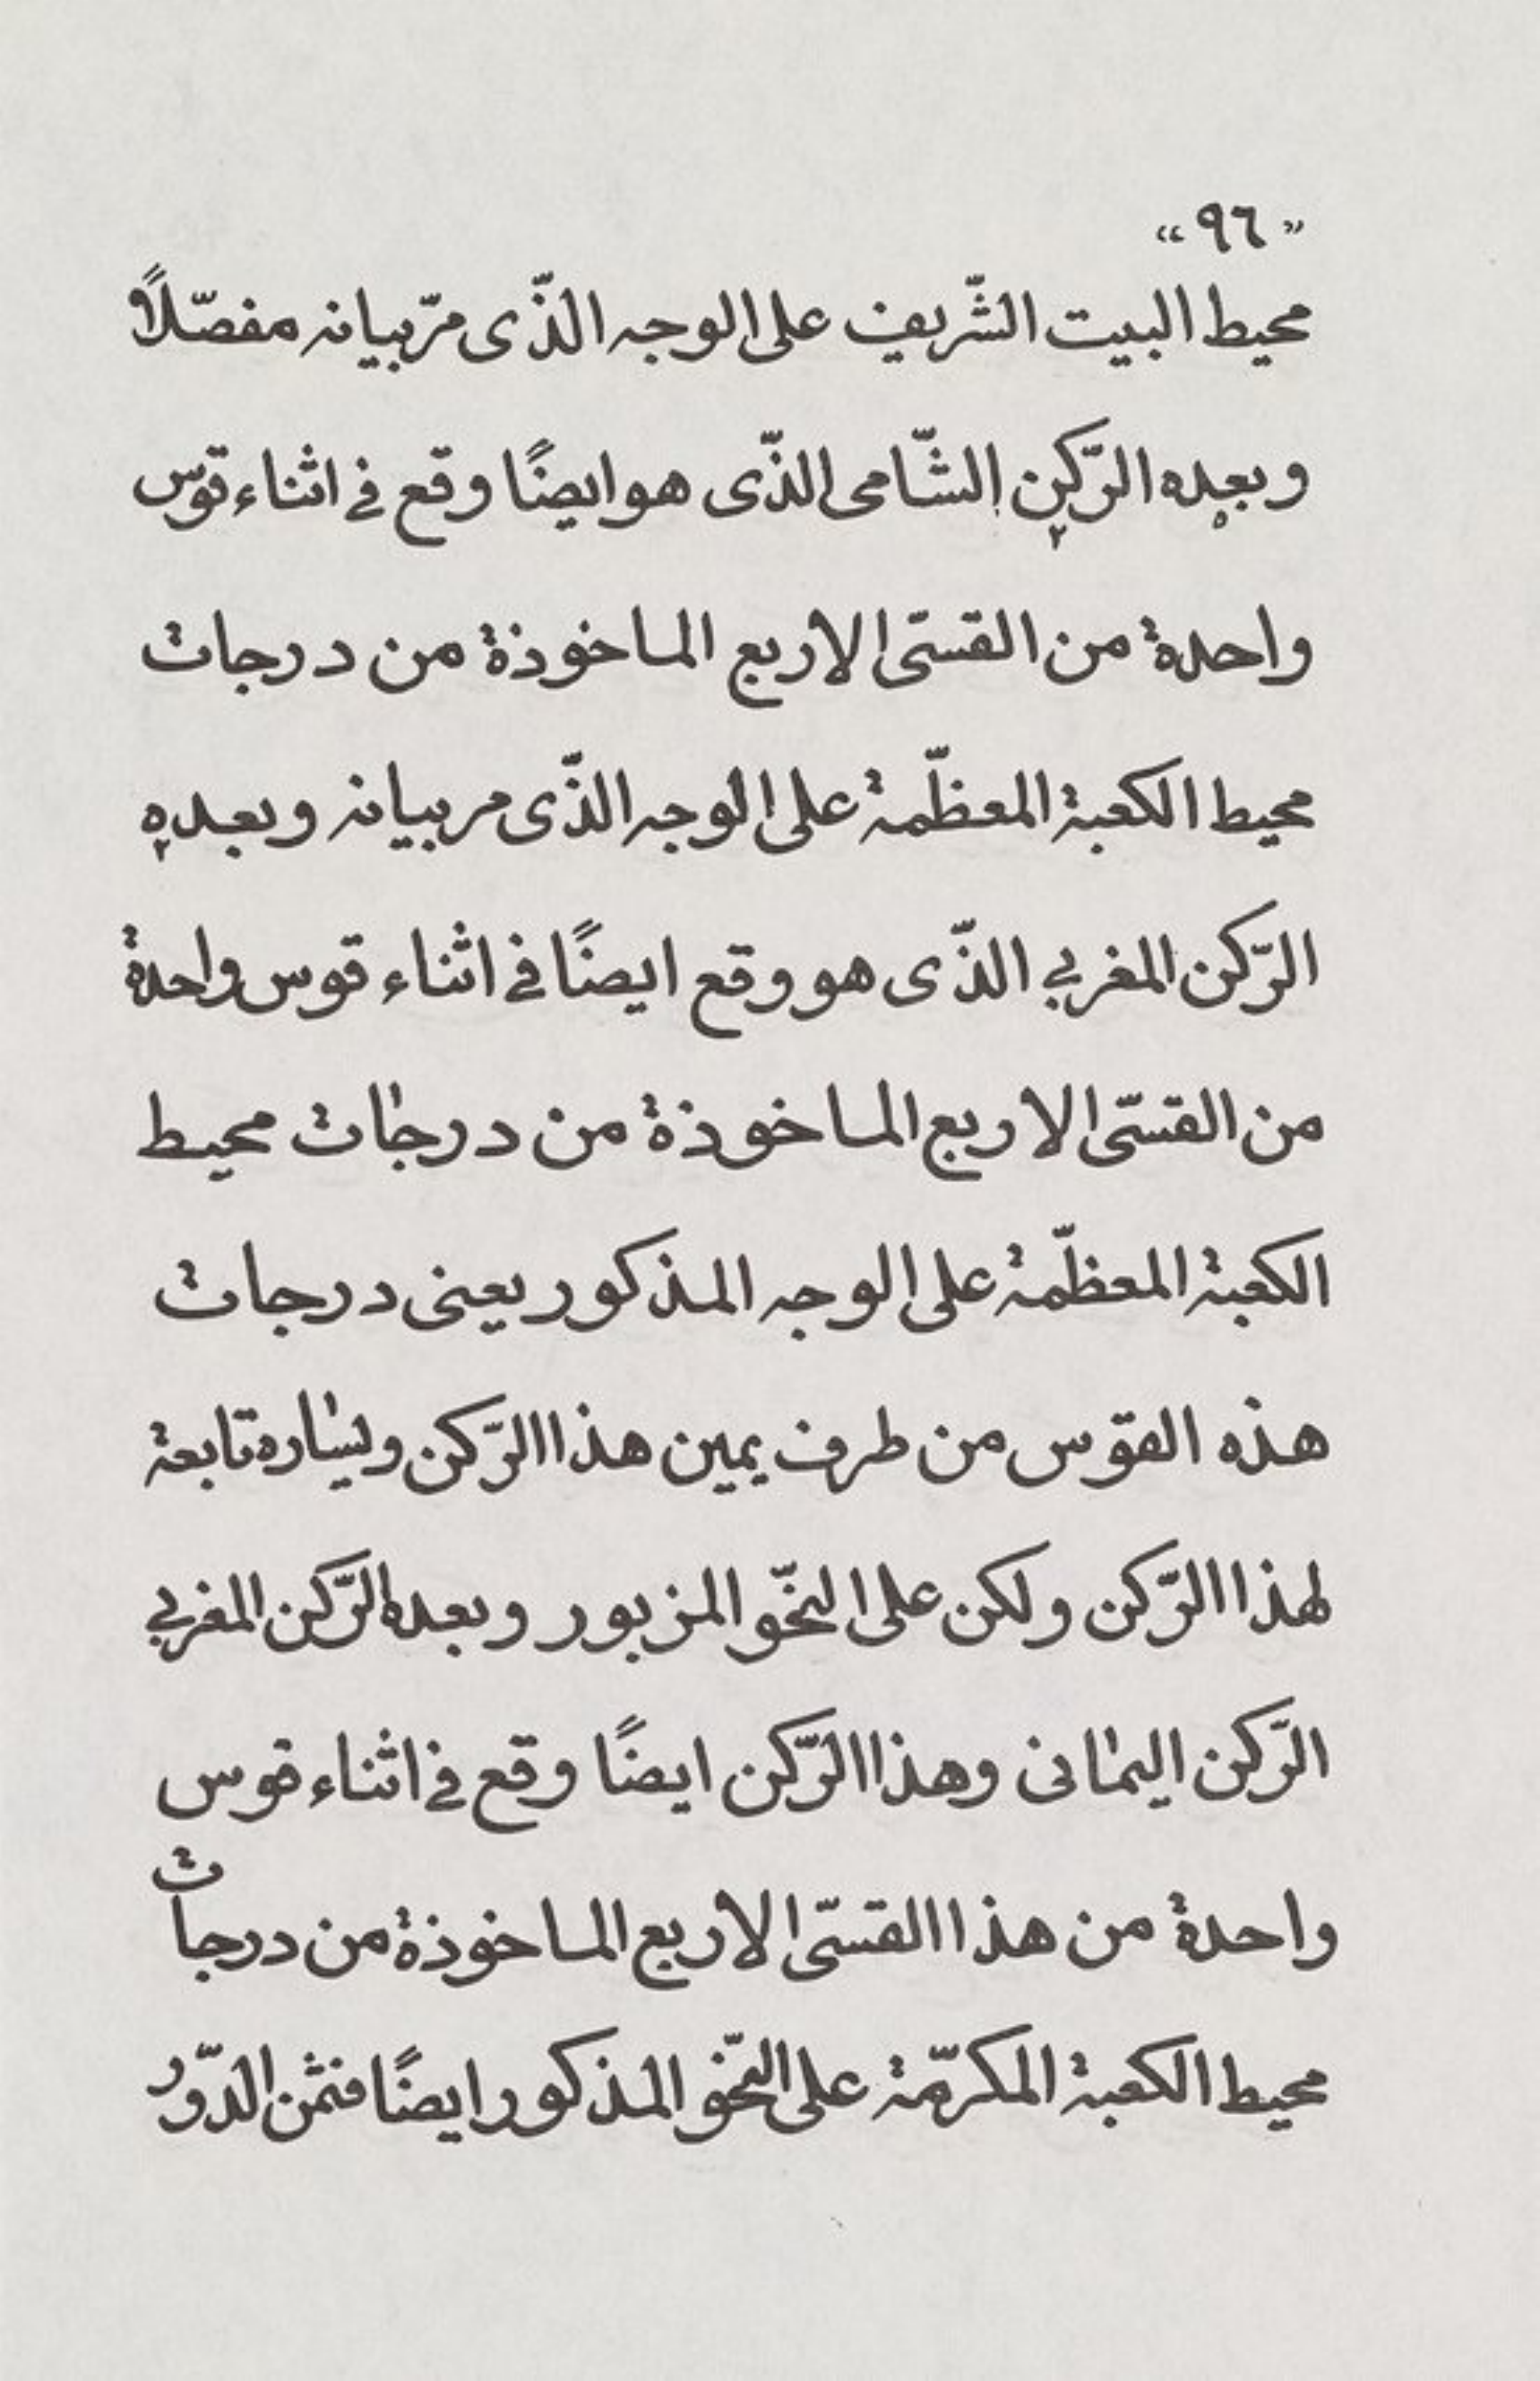 «٩٦»
محيط البيت الشّريف على الوجه الذّى مرّ بيانه مفصّلاً
وبعده الرّكن الشّامى الذّى هو ايضًا وقع فى اثناء قوس
واحدة من القسىّ الاربع الماخوذة من درجات
محيط الكعبة المعظّمة على الوجه الذّى مر بيانه وبعده
الرّكن المغربي الذّى هو وقع ايضًا فى اثناء قوس واحدة
من القسىّ الاربع الماخوذة من درجات محيط
الكعبة المعظّمة على الوجه المذكور يعنى درجات
هذه القوس من طرف يمين هذا الرّكن ويساره تابعة
لهذا الرّكن ولكن على النحّو المزبور وبعده الرّكن المغربي
الرّكن اليمانى وهذا الرّكن ايضًا وقع فى اثناء قوس
واحدة من هذا القسىّ الاربع الماخوذة من درجات
محيط الكعبة المكرّمة على النحّو المذكور ايضًا فثمن الدّور